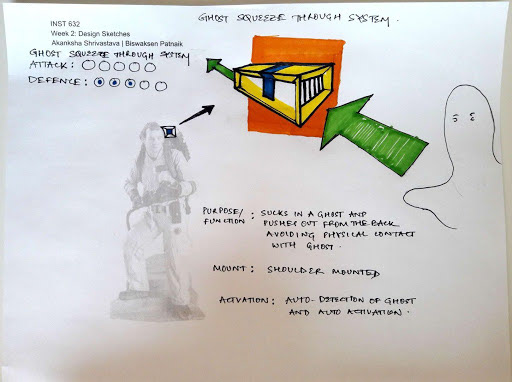 INST 632
Week 2: Design Sketches
Akanksha Shrivastava | Biswaksen Patnaik
GHOST SQUEEZE THROUGH SYSTEM
ATTACK:
DEFENCE:
GHOST SQUEEZE THROUGH SYSTEM.
PURPOSE/
FUNCTION : SUCKS IN A GHOST AND
PUSHES OUT FROM THE BACK
AVOIDING PHYSICAL CONTACT
WITH GHOST.
MOUNT : SHOULDER MOUNTED
ACTVATION : AUTO-DETECTION OF GHOST
AND AUTO ACTIVATION.